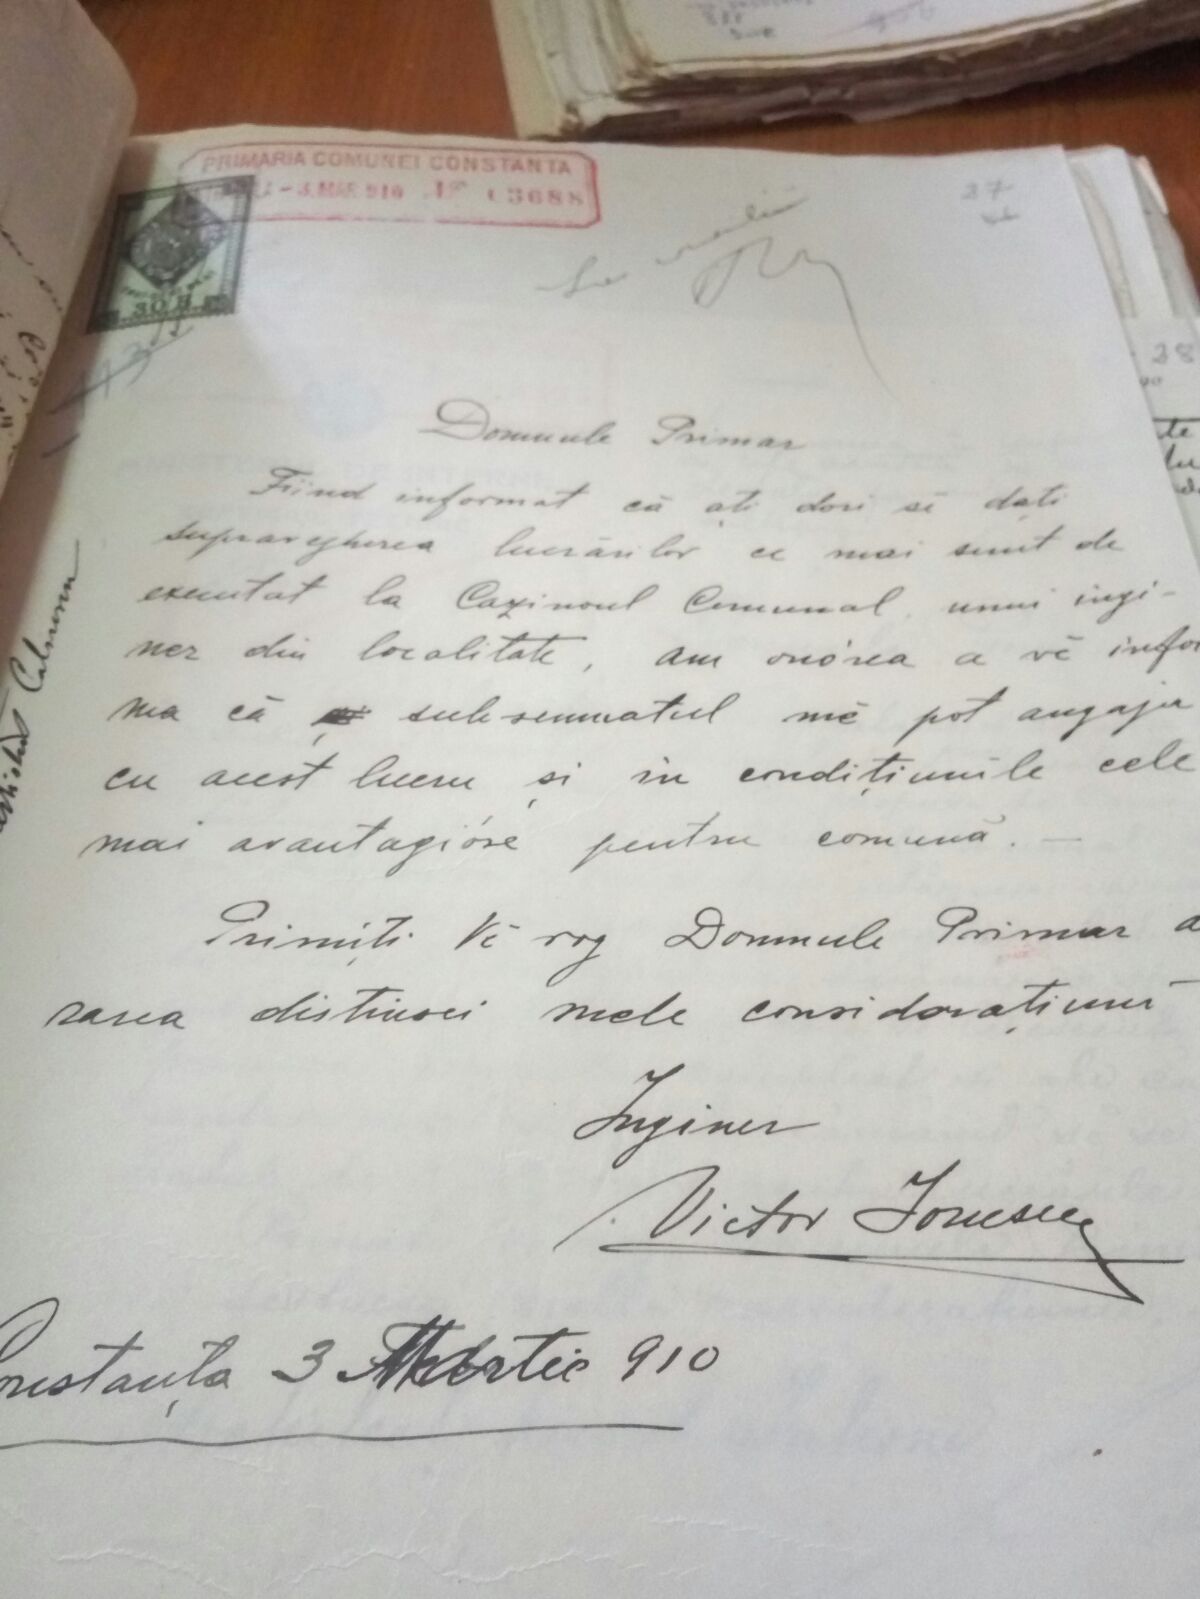 PRIMARIA COMUNEI CONSTANTA
- 3. MAR. 910 Nº 03688
37
30 B
38
Domnule Primar
Fiind informat că ați dori să dați
supraveghierea lucrărilor ce mai sunt de
executat la Cazinoul Comunal, unui ingi-
ner din localitate, am onórea a vĕ infor
ma că subsemnatul mĕ pot angaja
cu acest lucru și in condițiunile cele
mai avantagióse pentru comună. —
Primiți Vĕ rog Domnule Primar a
rarea distinsei mele considerațiuni
Inginer
Victor Ionescu
Constanța 3 Martie 910